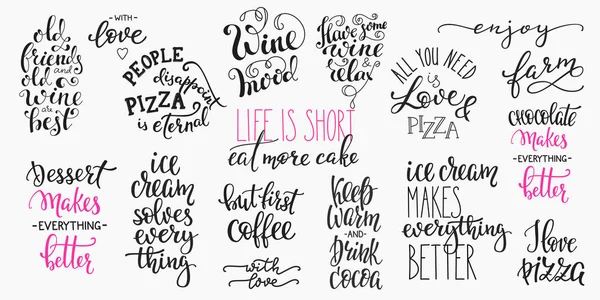 old
friends
and
old
wine
are
best
- WITH -
love
PEOPLE
disappoint
PIZZA
is eternal
Wine
mood
Have some
wine
&
relax
ALL YOU NEED
is
Love
&
PIZZA
enjoy
farm
LIFE IS SHORT
eat more cake
chocolate
Makes
- EVERYTHING -
better
Dessert
Makes
- EVERYTHING -
better
ice
cream
solves
every
thing
but first
coffee
with
love
Keep
warm
- AND -
Drink
cocoa
ice cream
MAKES
everything
BETTER
I love
pizza